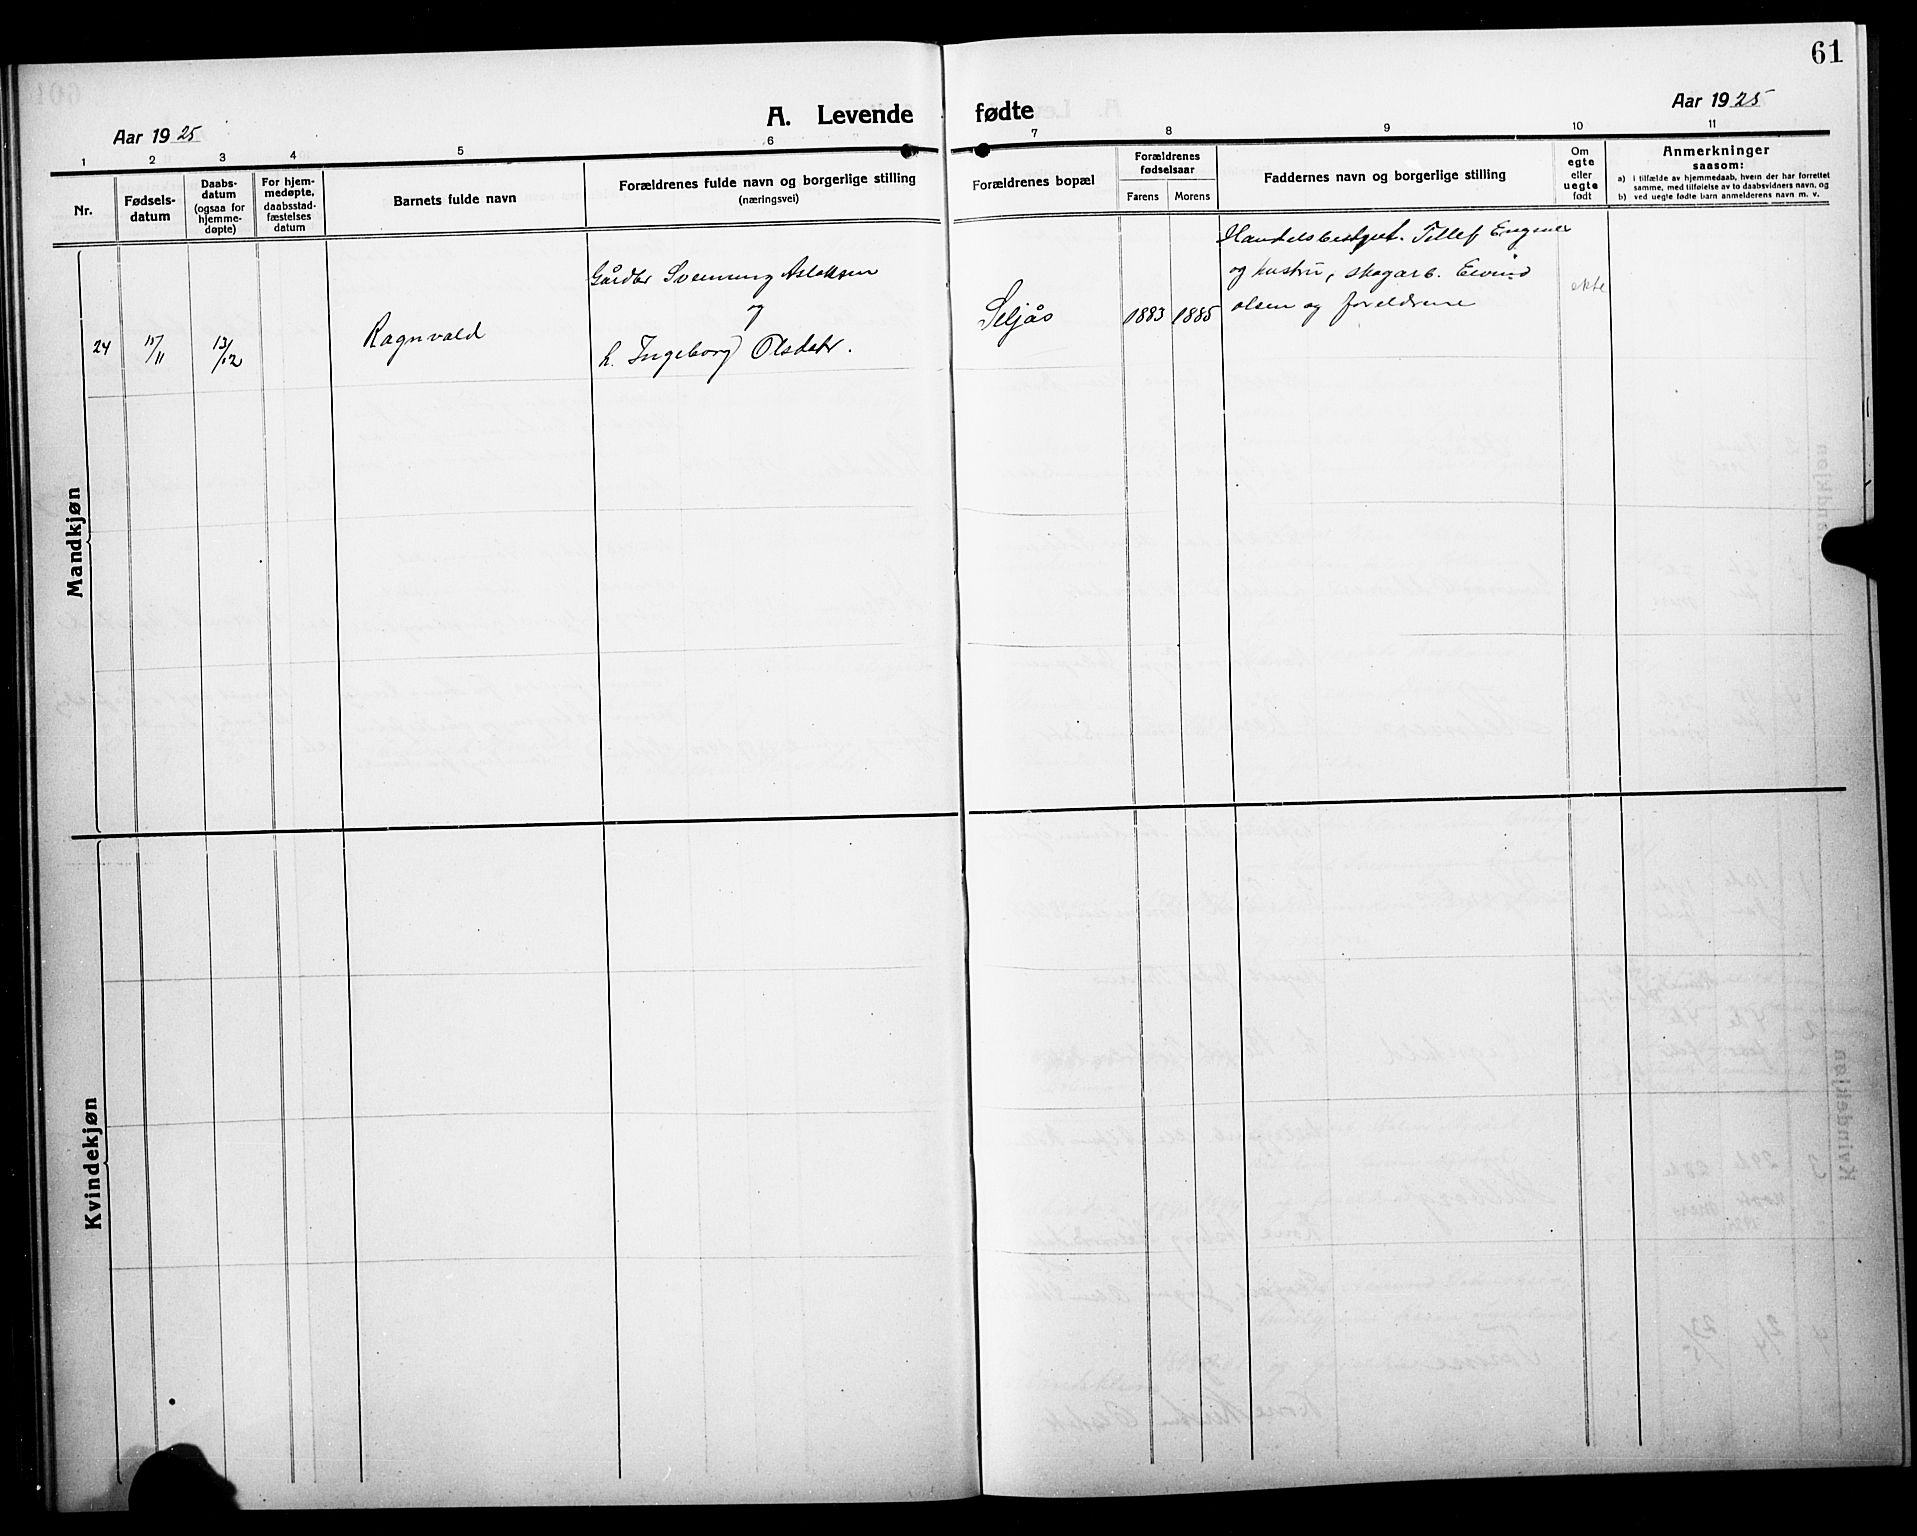 61
Aar 1925
A. Levende fødte
Aar 1925
1 2 3 4 5 6 7 8 9 10 11
Nr.
Fødsels-
datum
Daabs-
datum
(ogsaa for
hjemme-
døpte)
For hjem-
medøpte,
daabsstad-
fæstelses
datum
Barnets fulde navn
Forældrenes fulde navn og borgerlige stilling
(næringsvei)
Forældrenes bopæl
Forældrenes
fødselsaar
Farens Morens
Faddernes navn og borgerlige stilling
Om
egte
eller
uegte
født
Anmerkninger
saasom:
a) i tilfælde av hjemmedaab, hvem der har forrettet
samme, med tilføielse av to daabsvidners navn, og
b) ved uegte fødte barn anmelderens navn m. v.
Mandkjøn
24
15/11
13/12
Ragnvald
Gårdbr Svenning Aslaksen
og
h. Ingeborg Olsdatr.
Seljås
1883 1885
Handelsbestyrer. Tellef
og hustru, skogarb. Eivind
Olsen og foreldrene
ekte
Kvindekjøn